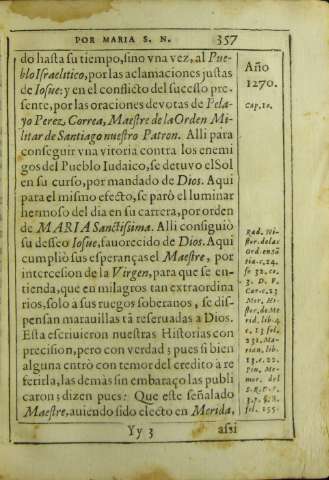 POR MARIA S. N. 357
do hasta su tiempo, sino vna vez, al Pue-
blo Israelitico, por las aclamaciones justas
de Iosue: y en el conflicto del sucesso pre-
sente, por las oraciones deuotas de Pela-
yo Perez, Correa, Maestre de la Orden Mi-
litar de Santiago nuestro Patron. Alli para
conseguir vna vitoria contra los enemi
gos del Pueblo Iudaico, se detuvo el Sol
en su curso, por mandado de Dios. Aqui
para el mismo efecto, se parò el luminar
hermoso del dia en su carrera, por orden
de MARIA Sanctissima. Alli consiguiò
su desseo Iosue, fauorecido de Dios. Aqui
cumpliò sus esperanças el Maestre, por
intercesion de la Virgen, para que se en-
tienda, que en milagros tan extraordina
rios, solo à sus ruegos soberanos, se dis-
pensan marauillas tã reseruadas à Dios.
Esta escriuieron nuestras Historias con
precision, pero con verdad; pues si bien
alguna entrò con temor del credito à re
ferirla, las demàs sin embaraço las publi
caron; dizen pues: Que este señalado
Maestre, auiendo sido electo en Merida,
Yy 3 assi
Año
1270.
Cap. 10.
Rad. Hi-
stor. de las
Ord. en sã
tia. c. 24.
fo 32. co.
3. D. F.
Car. c. 23
Mor. Hi-
stor. de Ma
drid. lib. 4
c. 13 fol.
231. Ma-
rian. lib.
13. c. 22.
Pin. Me-
mor. del
fol. 255.